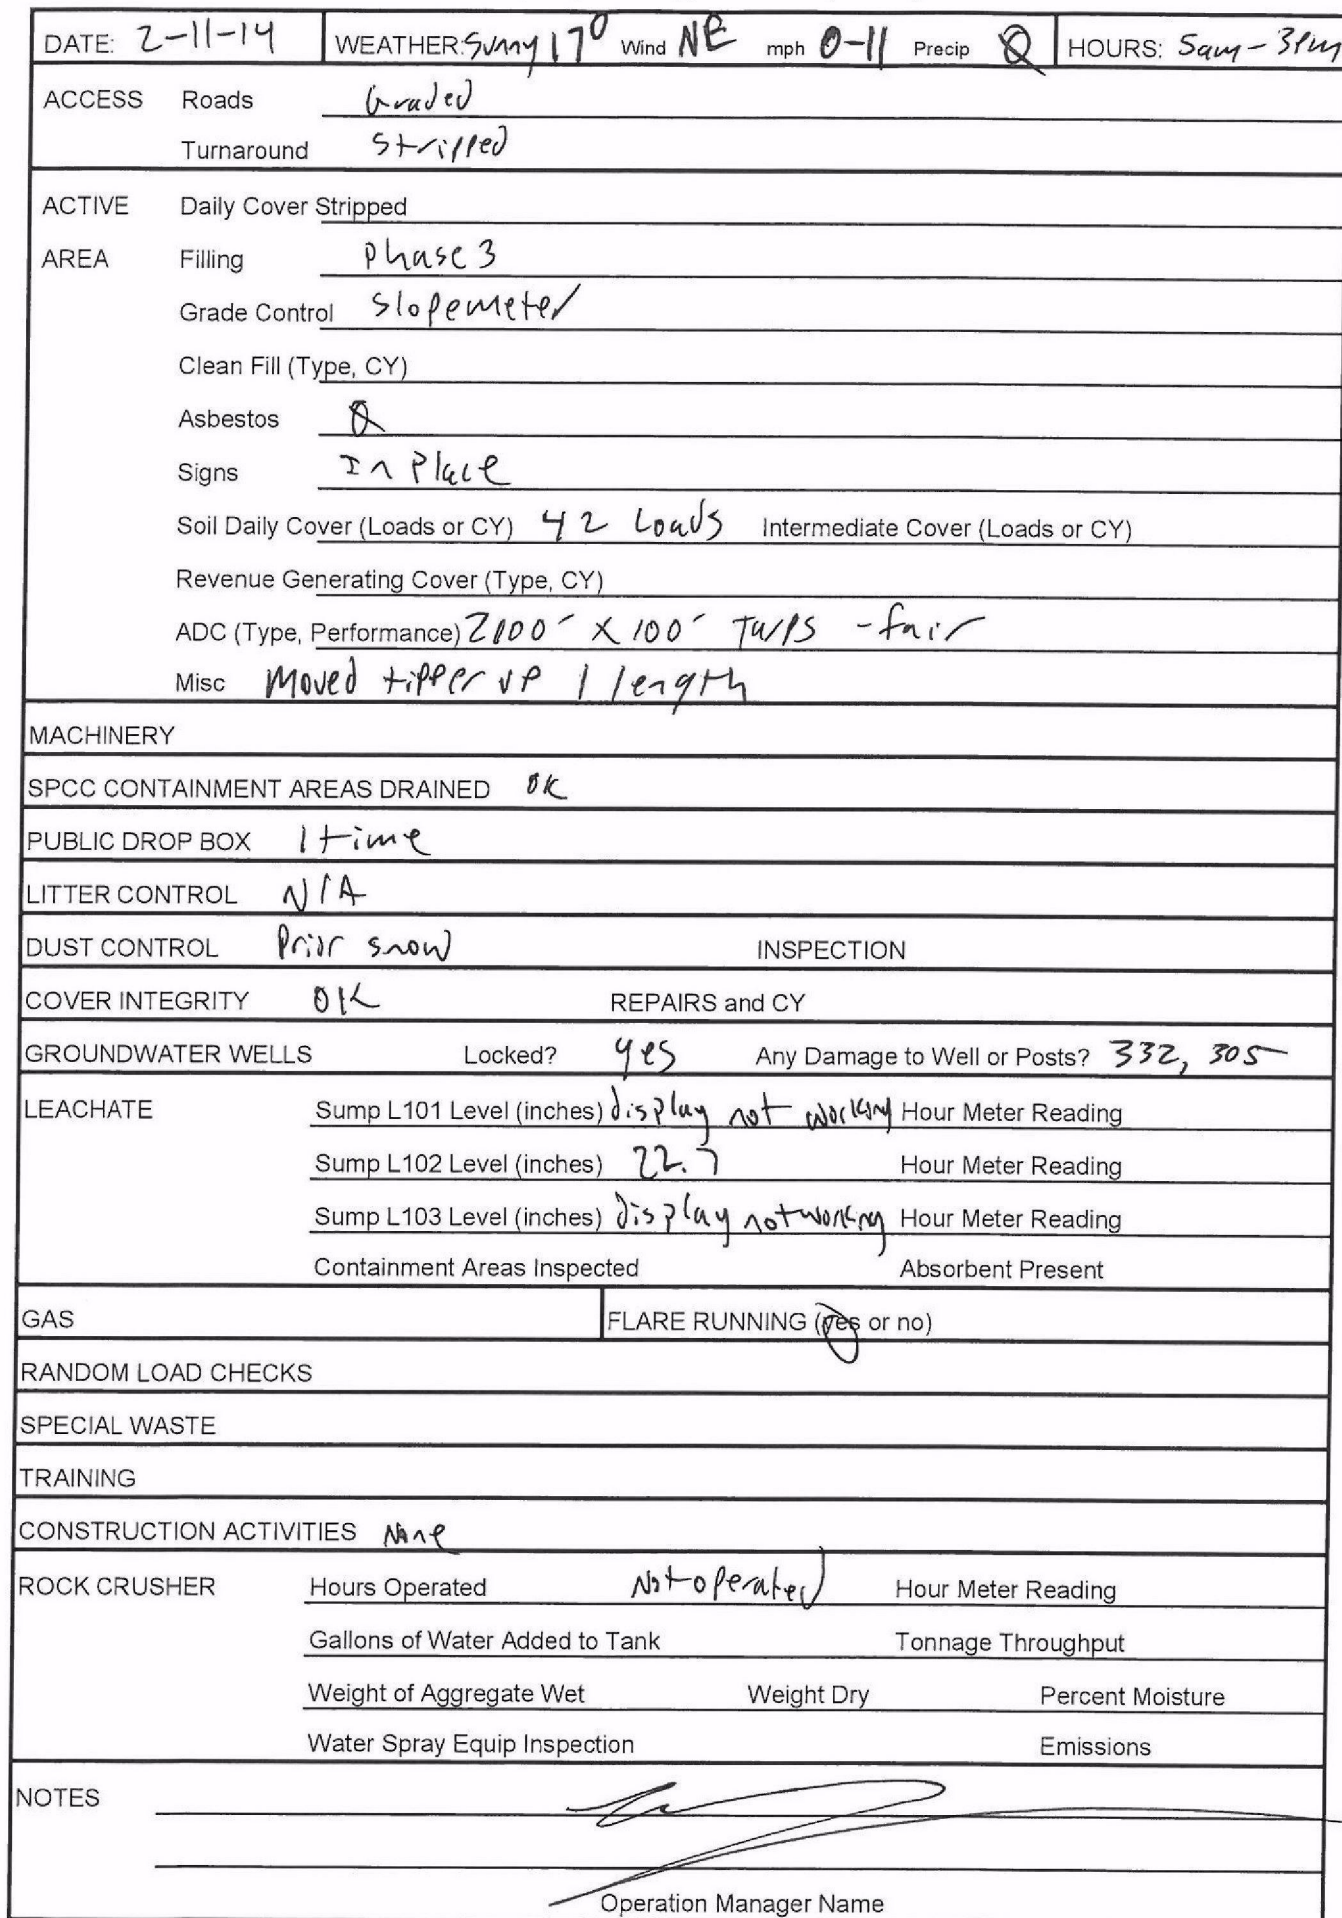 DATE: 2-11-14 WEATHER: Sunny 17° Wind NE mph 0-11 Precip 0 HOURS: 5am-3pm
ACCESS Roads Graded
Turnaround Stripped
ACTIVE Daily Cover Stripped
AREA Filling Phase 3
Grade Control Slopemeter
Clean Fill (Type, CY)
Asbestos 0
Signs In Place
Soil Daily Cover (Loads or CY) 42 Loads Intermediate Cover (Loads or CY)
Revenue Generating Cover (Type, CY)
ADC (Type, Performance) X 100' Tarps - fair
Misc Moved tipper up 1 length
MACHINERY
SPCC CONTAINMENT AREAS DRAINED OK
PUBLIC DROP BOX 1 time
LITTER CONTROL N/A
DUST CONTROL Prior snow INSPECTION
COVER INTEGRITY OK REPAIRS and CY
GROUNDWATER WELLS Locked? yes Any Damage to Well or Posts? 332, 305
LEACHATE Sump L101 Level (inches) display not working Hour Meter Reading
Sump L102 Level (inches) 22.7 Hour Meter Reading
Sump L103 Level (inches) display not working Hour Meter Reading
Containment Areas Inspected Absorbent Present
GAS FLARE RUNNING (yes or no)
RANDOM LOAD CHECKS
SPECIAL WASTE
TRAINING
CONSTRUCTION ACTIVITIES None
ROCK CRUSHER Hours Operated Not operated Hour Meter Reading
Gallons of Water Added to Tank Tonnage Throughput
Weight of Aggregate Wet Weight Dry Percent Moisture
Water Spray Equip Inspection Emissions
NOTES
Operation Manager Name